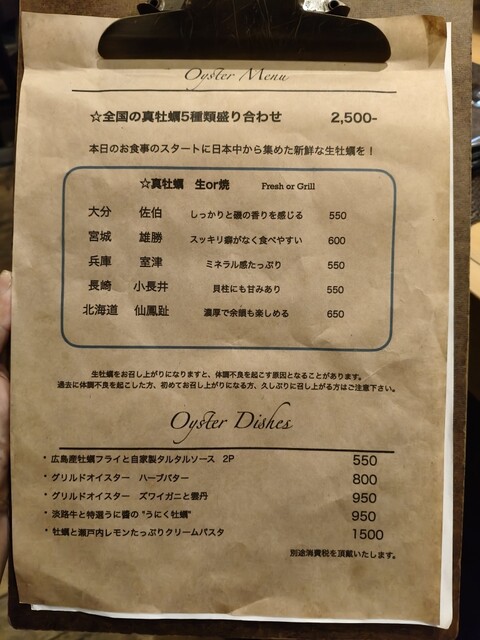 Oyster Menu
☆全国の真牡蠣5種類盛り合わせ 2,500-
本日のお食事のスタートに日本中から集めた新鮮な生牡蠣を！
☆真牡蠣 生or焼 Fresh or Grill
大分 佐伯 しっかりと磯の香りを感じる 550
宮城 雄勝 スッキリ癖がなく食べやすい 600
兵庫 室津 ミネラル感たっぷり 550
長崎 小長井 貝柱にも甘みあり 550
北海道 仙鳳趾 濃厚で余韻も楽しめる 650
生牡蠣をお召し上がりになりますと、体調不良を起こす原因となることがあります。
過去に体調不良を起こした方、初めてお召し上がりになる方、久しぶりに召し上がる方はご注意下さい。
Oyster Dishes
・広島産牡蠣フライと自家製タルタルソース 2P 550
・グリルドオイスター ハーブバター 800
・グリルドオイスター ズワイガニと雲丹 950
・淡路牛と特選うに醬の "うにく牡蠣" 950
・牡蠣と瀬戸内レモンたっぷりクリームパスタ 1500
別途消費税を頂戴いたします。